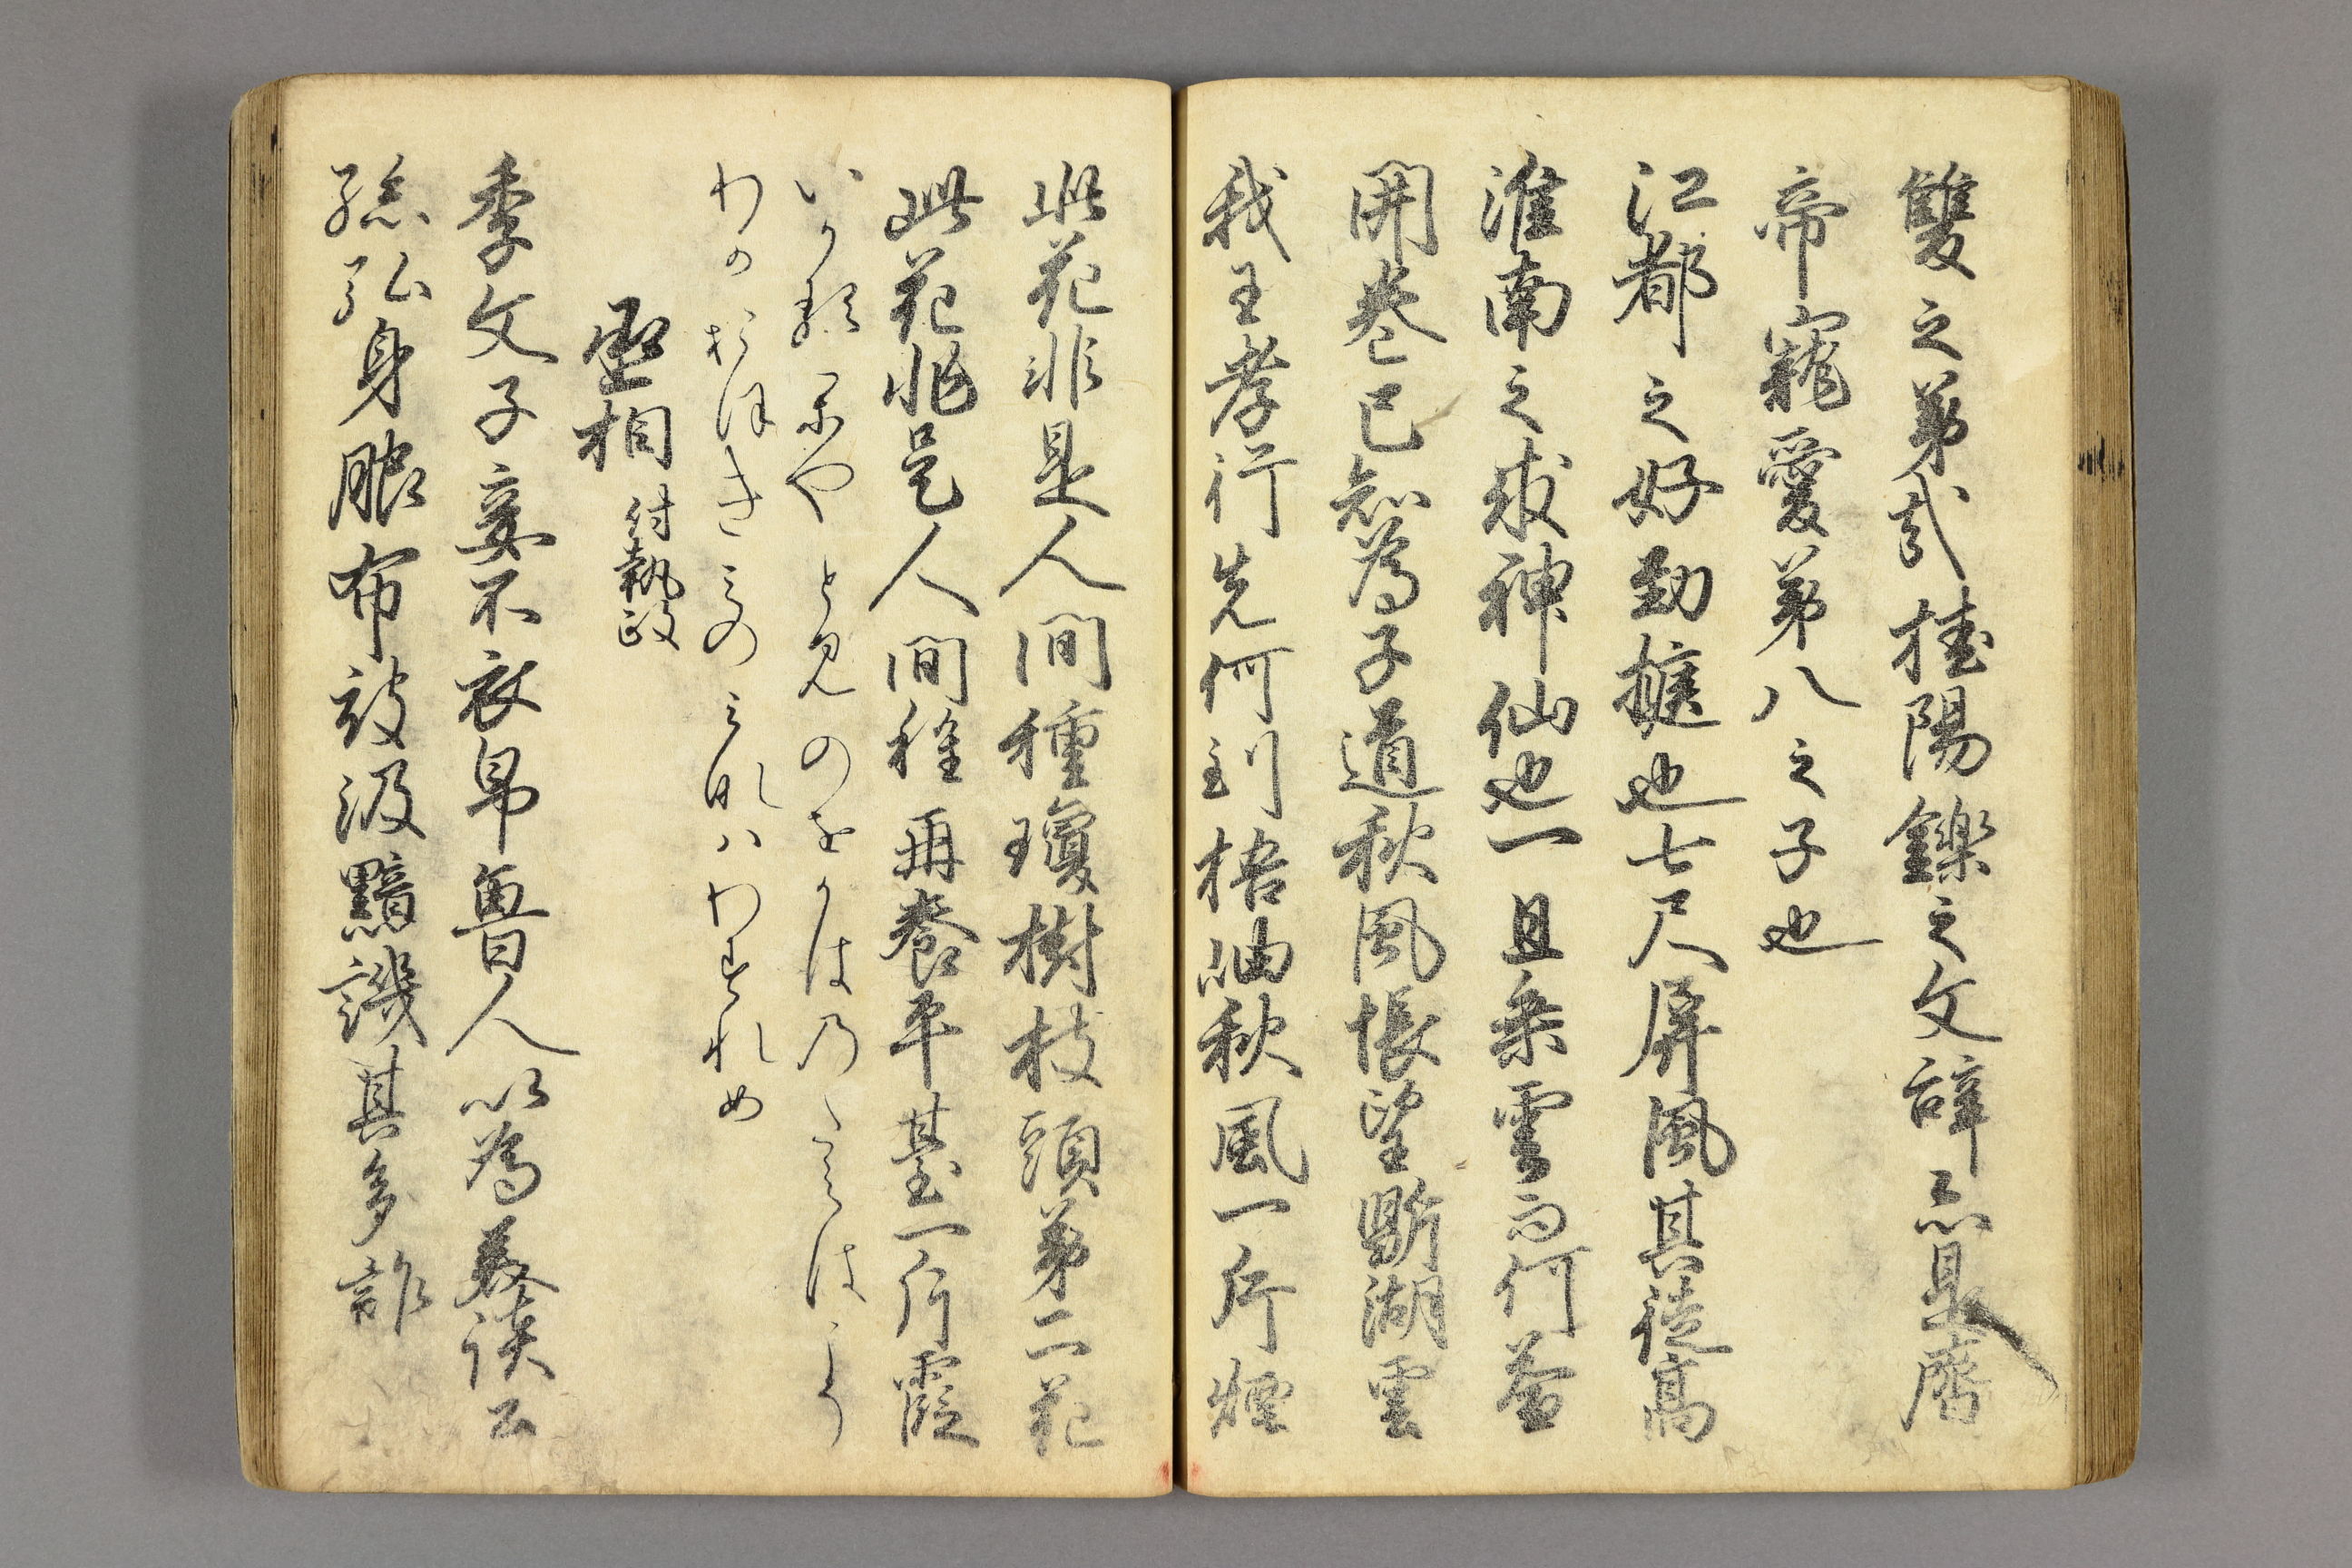 雙之弟弐桂陽鑠之文辞亦是齊
帝寵愛弟八之子也
江都之好勁捷也七尺屏風其徒高
淮南之求神仙也一旦乗雲而何益
開巻已知為子道秋風悵望鼎湖雲
我王孝行先何到梧岫秋風一片煙
此花非是人間種瓊樹枝頭弟二花
此花非是人間種再養平臺一片霞
いかるかやとみのをかはのたえはこそ
わかおほきみのみなはわすれめ
丞相 付執政
季文子妾不衣帛魯人以為美談公
孫弘身服布被汲黯譏其多詐